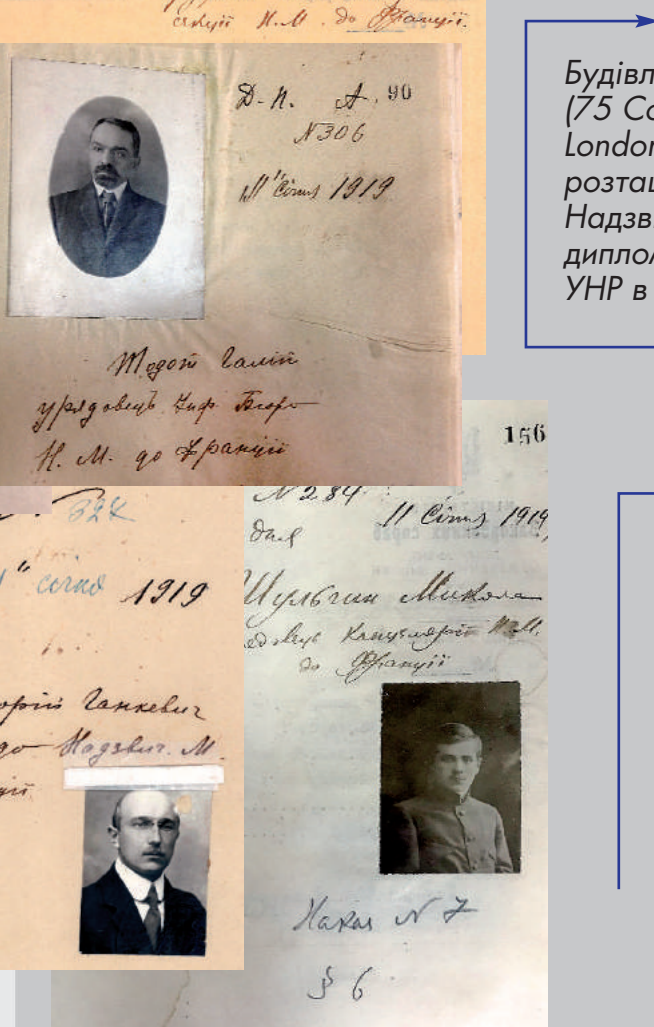 секції Н.М. до Франції.
Д. П. А. 90
N306
11 Січня 1919
Тодот Галіп
урядовець Інф. Бюро
Н. М. до Франції
Будівл
(75 Co
London
розташ
Надзв
дипло
УНР в
156
N 284
11 Січня 1919
Шульгин Микола
Канцелярії Н.М.
до Франції
324
" січня 1919
орій Ганкевич
до Надзвич. М.
ції
Наказ N 7
§ 6